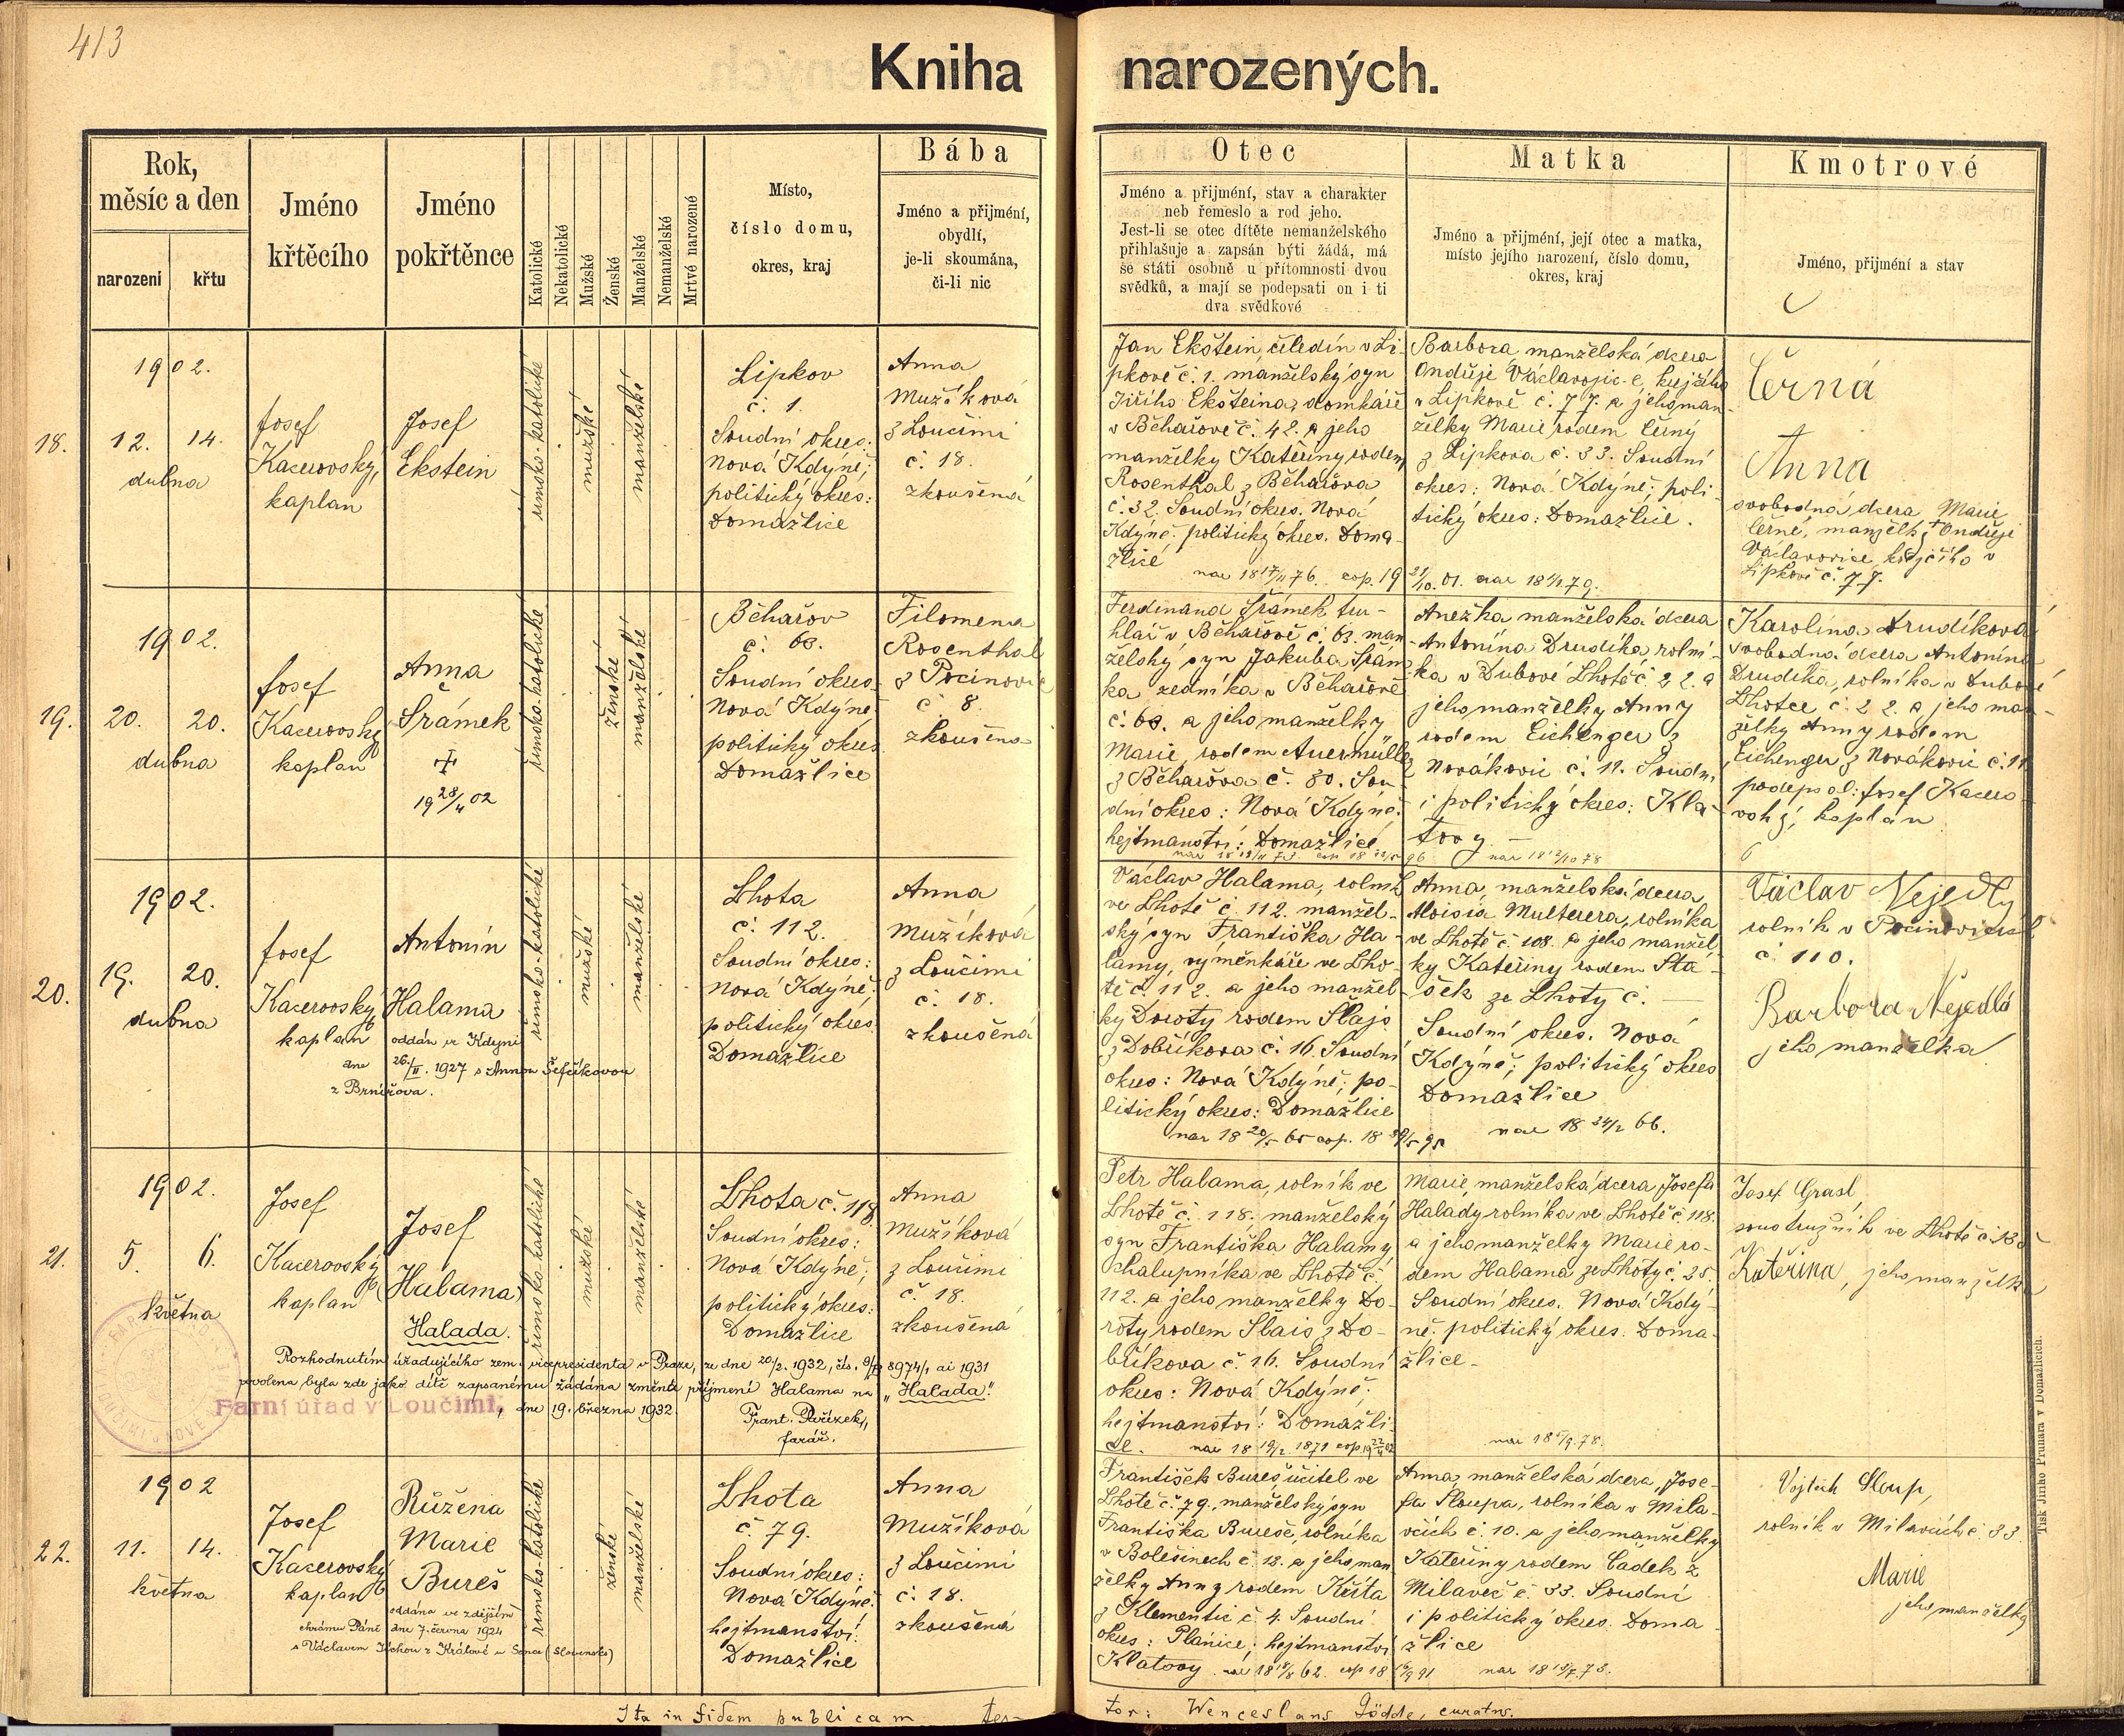 413
Kniha narozených.
Rok,
měsíc a den
narození
křtu
Jméno
křtěcího
Jméno
pokřtěnce
Katolické
Nekatolické
Mužské
Ženské
Manželské
Nemanželské
Mrtvě narozené
Místo,
číslo domu,
okres, kraj
Bába
Jméno a příjmení,
obydlí,
je-li skoumána,
či-li nic
Otec
Jméno a přijmění, stav a charakter
neb řemeslo a rod jeho.
Jest-li se otec dítěte nemanželského
přihlašuje a zapsán býti žádá, má
se státi osobně u přítomnosti dvou
svědků, a mají se podepsati on i ti
dva svědkové
Matka
Jméno a přijmění, její otec a matka,
místo jejího narození, číslo domu,
okres, kraj
Kmotrové
Jméno, přijmění a stav
18.
1902.
12. 14.
dubna
Josef
Kacerovský,
kaplan
Josef
Ekstein
římsko-katolické
mužské
manželské
Lipkov
č. 1.
Soudní okres:
Nová Kdýně;
politický okres:
Domažlice
Anna
Mužíková
z Loučimi
č. 18.
zkoušená
Jan Ekštein, čeledín v Li-
pkově č. 1. manželský syn
Jiřího Eksteina, domkáře
v Běhařově č. 42. a jeho
manželky Kateřiny rodem
Rosenthal z Běhařova
č. 32. Soudní okres. Nová
Kdýně. politický okres. Doma-
žlice
nar 18 17/11 76. cop. 19 21/10. 01.
Barbora manželská dcera
Ondřeje Václavovice, krejčího
v Lipkově č. 77. a jeho man-
želky Marie rodem Černý
z Lipkova č. 33. Soudní
okres: Nová Kdýně; poli-
tický okres: Domažlice.
Černá
Anna
svobodná dcera Marie
Černé, manželky † Ondřeje
Václavovice krejčího v
Lipkově č. 77.
19.
1902.
20. 20.
dubna
Josef
Kacerovský
kaplan
Anna
Šrámek
✝
19 28/4 02
římsko-katolické
ženské
manželské
Běhařov
č. 63.
Soudní okres
Nová Kdýně
politický okres
Domažlice
Filomena
Rosenthal
z Pocinovic
č. 8.
zkoušena
Ferdinand Šrámek tru-
hlář v Běhařově č. 63. man-
želský syn Jakuba Šrám-
ka zedníka v Běhařově
č. 63. a jeho manželky
Marie, rodem Auermüller
z Běhařova č. 80. Sou-
dní okres: Nová Kdýně.
hejtmanství: Domažlice
Anežka manželská dcera
Antonína Drudíka rolní-
ka v Dubové Lhotě č. 22. a
jeho manželky Anny
rodem Eichenger z
Novákovic č. 11. Soudn.
i politický okres: Kla-
tovy.
nar 18 12/10 78
Karolina Drudíková
svobodná dcera Antonína
Drudíka, rolníka v Dubové
Lhotce č. 22. a jeho man-
želky Anny rodem
Eichenger z Novákovic č. 11
podepsal: Josef Kacero-
vský, kaplan
20.
1902.
19. 20.
dubna
Josef
Kacerovský
kaplan
Antonín
Halama
oddán ve Kdyni
dne 26./II. 1927 s Annou Šefčíkovou
z Brnířova.
římsko-katolické
mužské
manželské
Lhota
č. 112.
Soudní okres:
Nová Kdýně;
politický okres
Domažlice
Anna
Mužíková
z Loučimi
č. 18.
zkoušená
Václav Halama, rolník
ve Lhotě č. 112. manžel-
ský syn Františka Ha-
lamy, výměnkáře ve Lho-
tě č. 112. a jeho manžel-
ky Doroty rodem Šlajs
z Dobříkova č. 16. Soudní
okres: Nová Kdýně; po-
litický okres: Domažlice
Anna, manželská dcera
Aloisia Multerera, rolníka
ve Lhotě č. 108. a jeho manžel-
ky Kateřiny rodem Sta-
šek ze Lhoty č. —
Soudní okres. Nová
Kdýně; politický okres
Domažlice
nar 18 24/2 66.
Václav Nejedlý
rolník v Pocinovicích
č. 110.
Barbora Nejedlá
jeho manželka
21.
1902.
5. 6.
května
Josef
Kacerovský
kaplan
Josef
(Halama)
Halada.
římsko-katolické
mužské
manželské
Lhota č. 118
Soudní okres:
Nová Kdýně;
politický okres:
Domažlice
Anna
Mužíková
z Loučimi
č. 18.
zkoušená
Rozhodnutím úřadujícího zem. vicepresidenta v Praze, ze dne 20/2. 1932, čís. 8974/1 ai 1931
povolena byla zde jako dítě zapsanému žádána změnta příjmení Halama na „Halada."
Farní úřad v Loučimi, dne 19. března 1932.
Frant. Pařízek,
farář.
Petr Halama, rolník ve
Lhotě č. 118. manželský
syn Františka Halamy
chalupníka ve Lhotě č.
112. a jeho manželky Do-
roty rodem Šlais z Do-
bříkova č. 16. Soudní
okres: Nová Kdýně;
hejtmanství: Domažli-
ce. nar 18 19/2. 1871
Marie, manželská dcera Josefa
Halady rolníka ve Lhotě č. 118.
a jeho manželky Marie ro-
dem Halama ze Lhoty č. 25.
Soudní okres. Nová Kdý-
ně. politický okres. Doma-
žlice.
Josef Grasl,
soustružník ve Lhotě
Kateřina, jeho manželka
22.
1902
11. 14.
května
Josef
Kacerovský
kaplan
Růžena
Marie
Bureš
oddána ve zdejším
chrámu Páně dne 7. června 1924
s Václavem Jíchou z Králové u Sence (Slovensko)
římsko-katolické
ženské
manželské
Lhota
č. 79.
Soudní okres:
Nová Kdýně.
hejtmanství:
Domažlice
Anna
Mužíková
z Loučimi
č. 18.
zkoušená
František Bureš, učitel ve
Lhotě č. 79., manželský syn
Františka Bureše, rolníka
v Bolešinech č. 12. a jeho man-
želky Anny rodem Křita
z Klementic č. 4. Soudní
okres: Plánice; hejtmanství
Klatovy.
Anna manželská dcera, Jose-
fa Sloupa, rolníka v Mila-
včích č. 10. a jeho manželky
Kateřiny rodem Čadek z
Milavče č. 33. Soudní
i politický okres. Doma-
žlice
Vojtěch Sloup,
rolník v Milavčích č. 33
Marie
jeho manželka
Ita in fidem publicam tes-
tor: Wenceslaus Gödde, curatus.
Tisk Jiřího Prunara v Domažlicích.